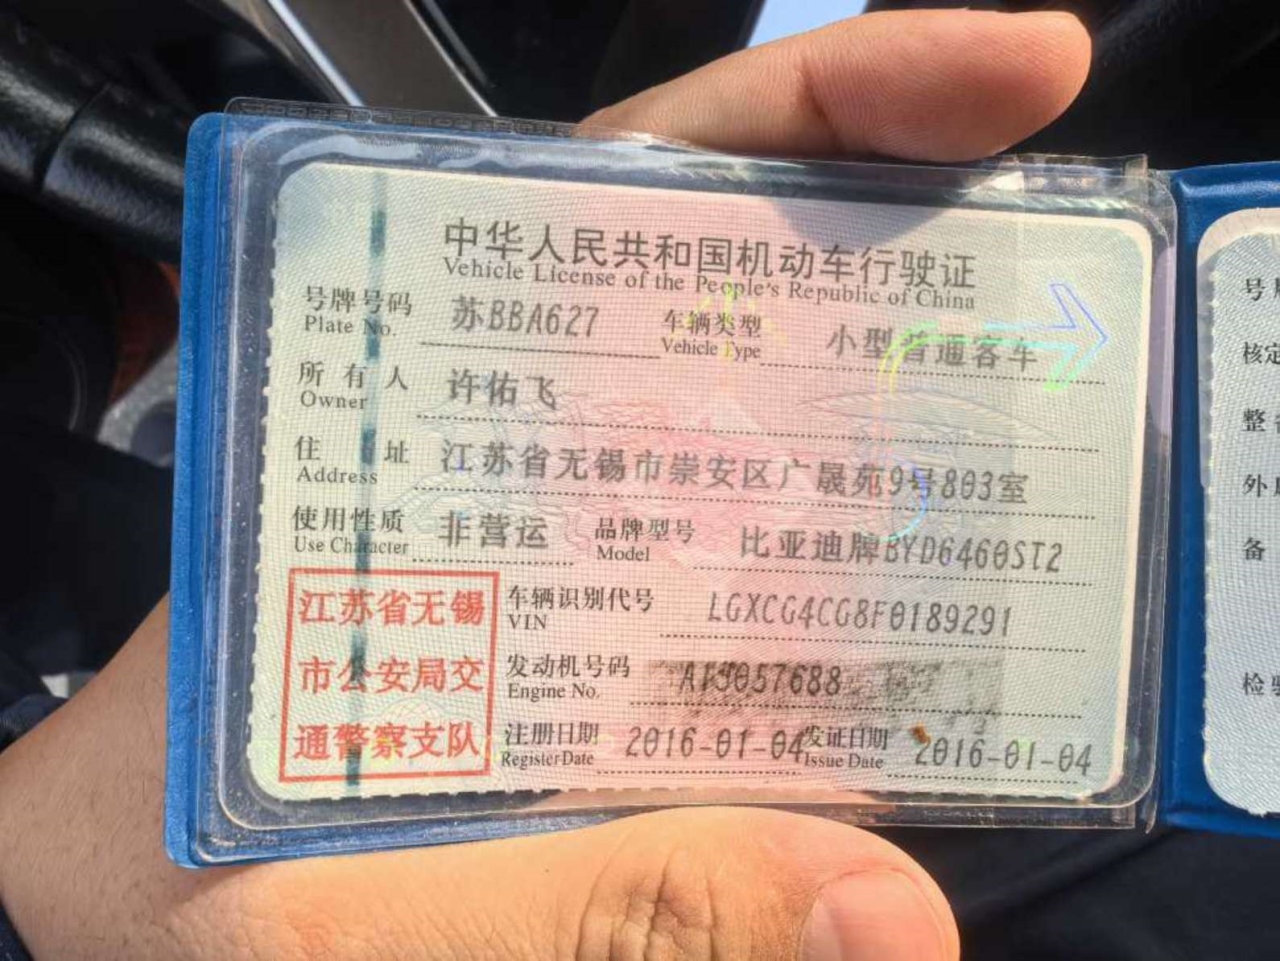 中华人民共和国机动车行驶证
Vehicle License of the People's Republic of China
号牌号码 苏BBA627 车辆类型 小型普通客车
Plate No. Vehicle Type
所有人 许佑飞
Owner
住址 江苏省无锡市崇安区广晟苑9号803室
Address
使用性质 非营运 品牌型号 比亚迪牌BYD6460ST2
Use Character Model
江苏省无锡
市公安局交
通警察支队
车辆识别代号 LGXCG4CG8F0189291
VIN
发动机号码
Engine No.
注册日期 2016-01-04 发证日期 2016-01-04
Register Date Issue Date
号
核定
整
外
备
检